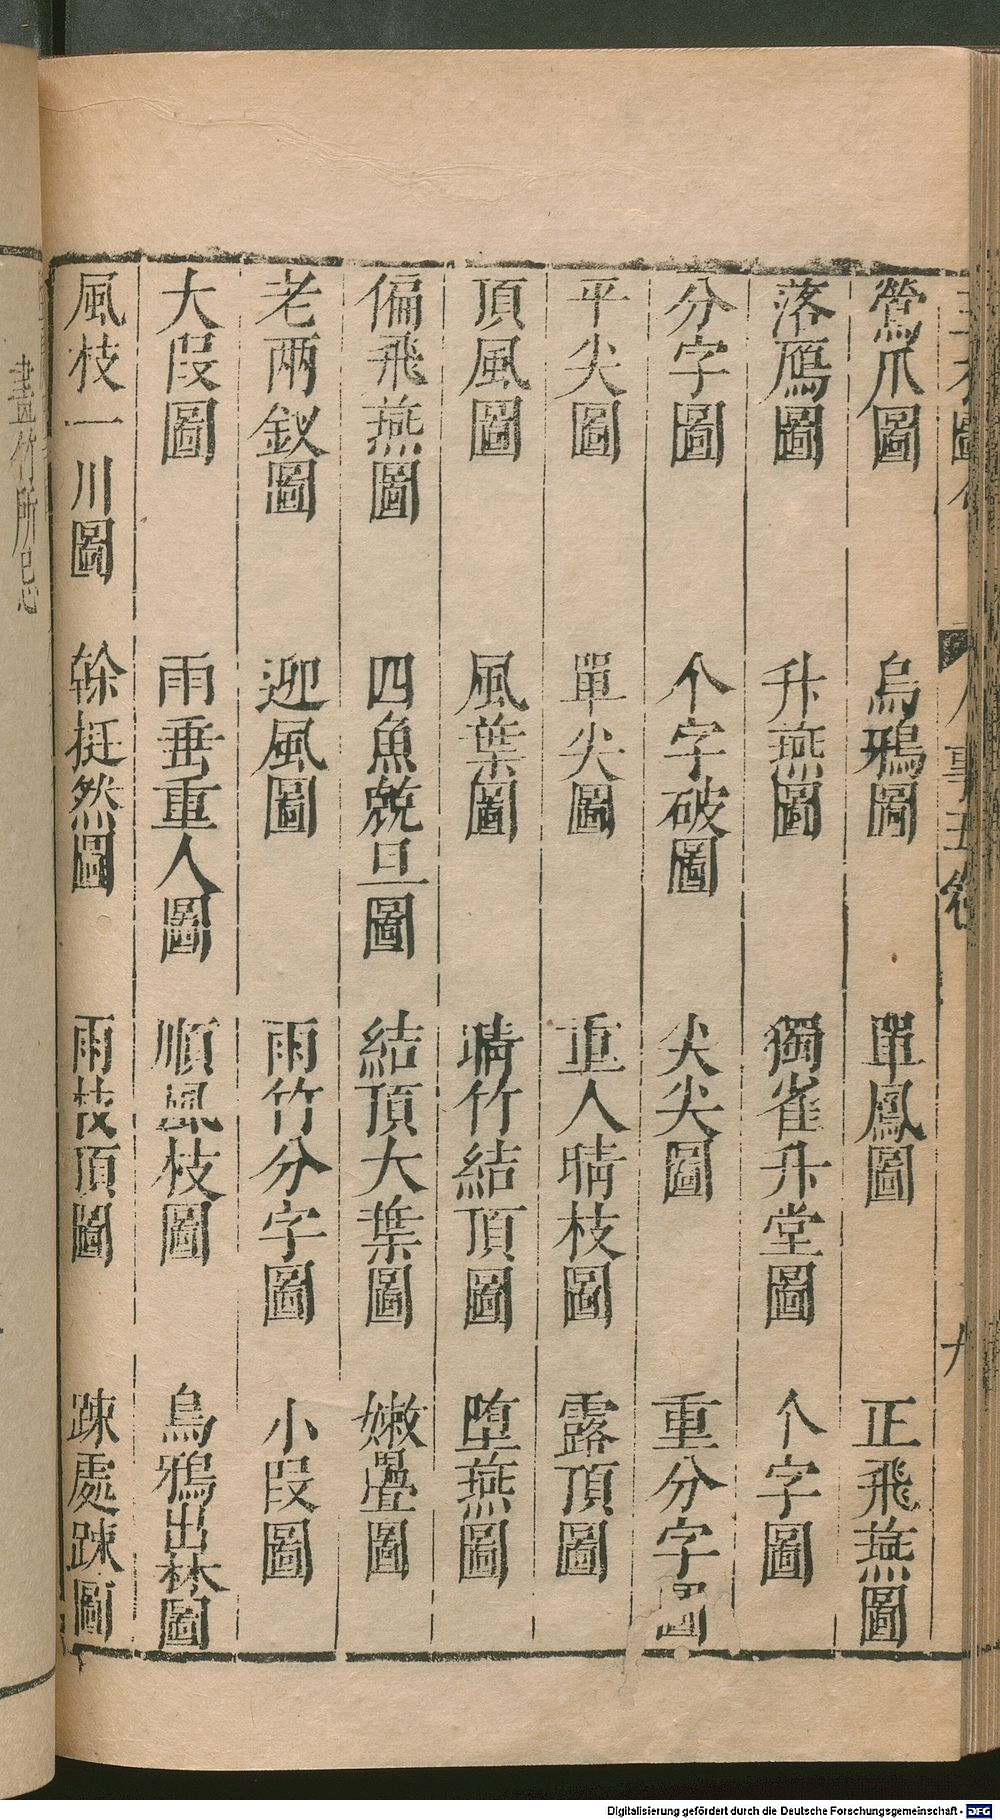 鶯爪圖 烏鴉圖 單鳳圖 正飛燕圖
落鴈圖 升燕圖 獨雀升堂圖 个字圖
分字圖 个字破圖 尖尖圖 重分字圖
平尖圖 單尖圖 重人晴枝圖 露頂圖
頂風圖 風葉圖 晴竹結頂圖 墮燕圖
偏飛燕圖 四魚兢旦圖 結頂大葉圖 嫩疊圖
老兩釵圖 迎風圖 雨竹分字圖 小段圖
大段圖 雨垂重人圖 順風枝圖 烏鴉出林圖
風枝一川圖 榦挺然圖 雨枝頂圖 踈處踈圖
畫竹所忌
Digitalisierung gefördert durch die Deutsche Forschungsgemeinschaft - DFG